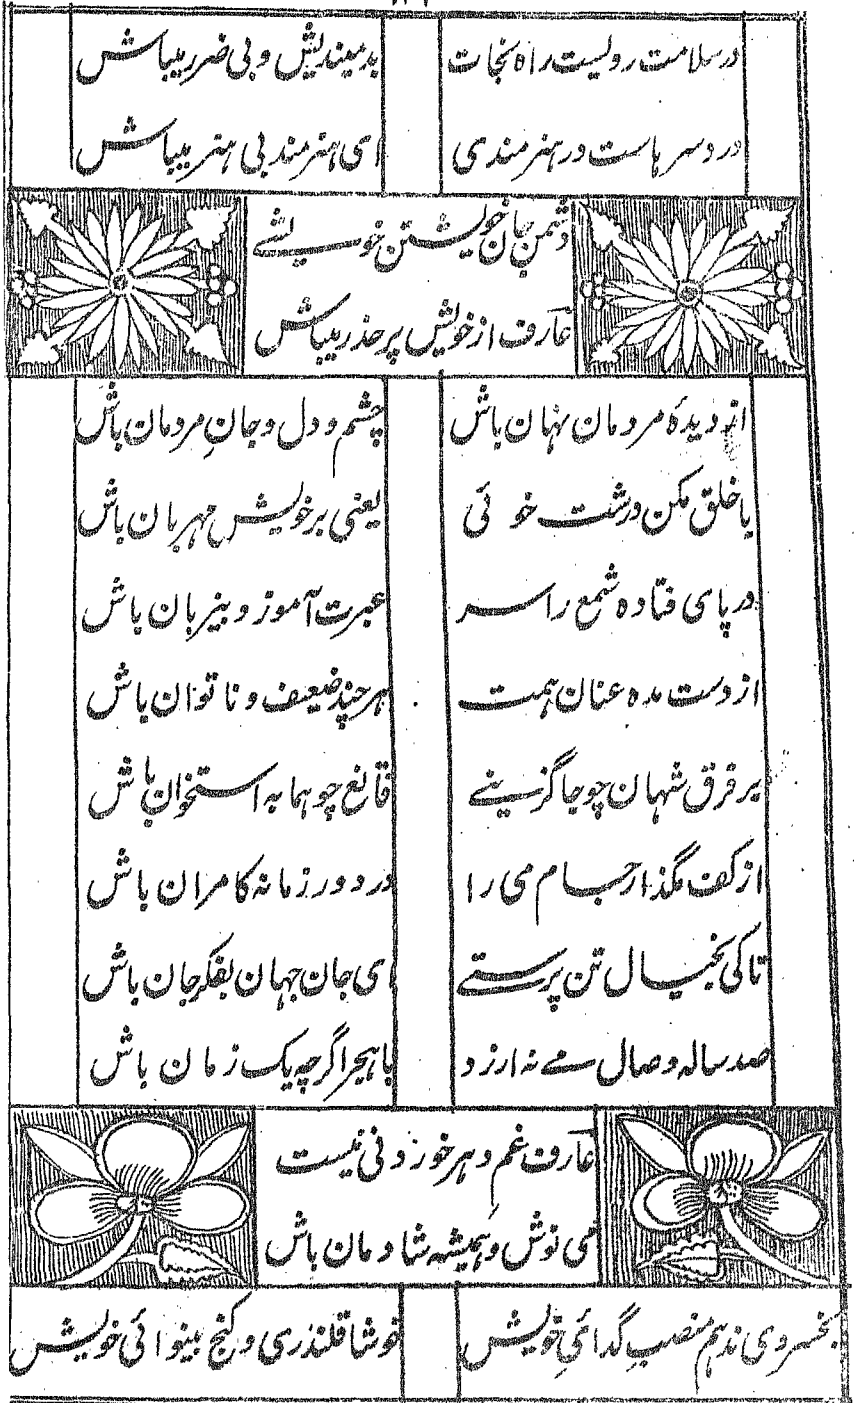 در سلامت رویست راه نجات    بد میندیش و بی ضرر میباش
دردسر هاست در هنرمندی    ای هنرمند بی هنر میباش
دشمن جان خویشتن خویشے
عارف از خویش پر حذر میباش
از دیدهٔ مردمان نهان باش    چشم و دل و جانِ مردمان باش
با خلق مکن درشت خوئی    یعنی بر خویش مهربان باش
در پای فتاده شمع را سر    عبرت آموز و بیزبان باش
از دست مده عنان همت    هر چند ضعیف و ناتوان باش
بر فرق شهان چو جا گزینے    قانع چو هما به استخوان باش
از کف مگذار جام می را    در دور زمانه کامران باش
تا کی بخیال تن پرستے    ای جان جهان بفکر جان باش
صد ساله وصال مے نه ارزد    با هجر اگرچه یک زمان باش
عارف غم دهر خوردنی نیست
می نوش و همیشه شادمان باش
بخسروی ندهم منصبِ گدائیِ خویش    خوشا قلندری و کنج بینوائی خویش